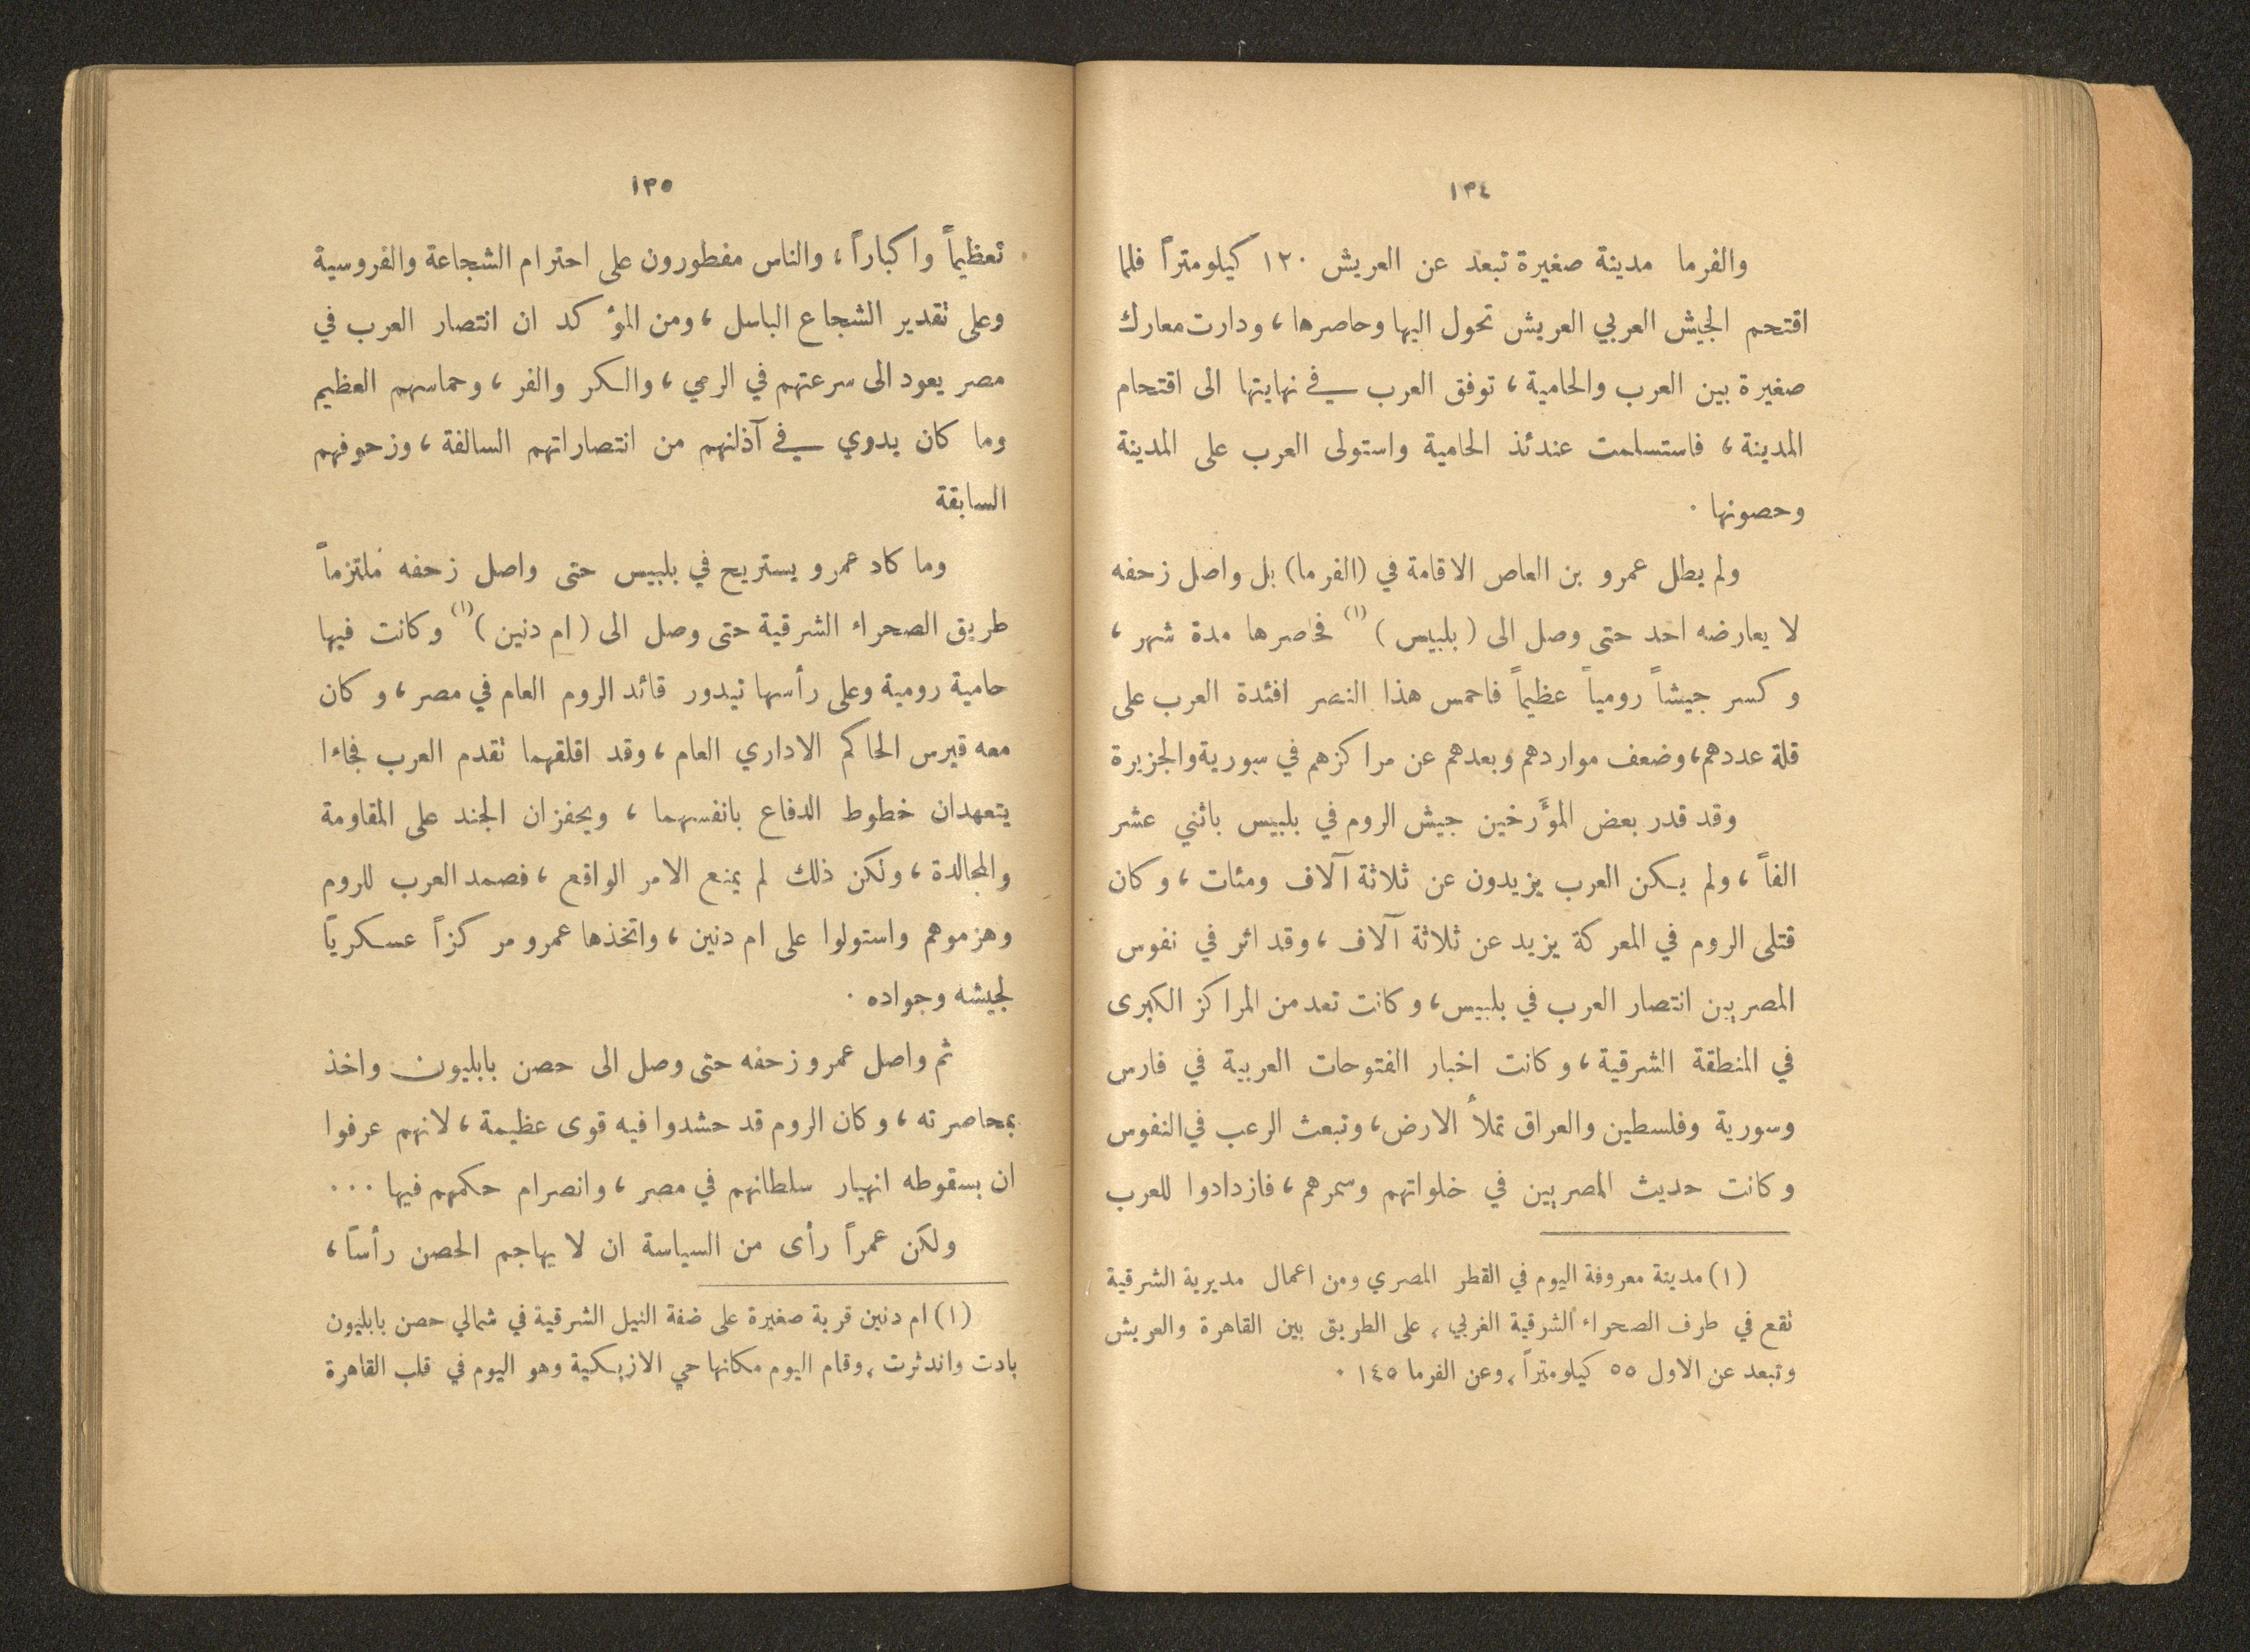 ١٣٤
والفرما مدينة صغيرة تبعد عن العريش ١٢٠ كيلومتراً فلما
اقتحم الجيش العربي العريش تحول اليها وحاصرها، ودارت معارك
صغيرة بين العرب والحامية، توفق العرب في نهايتها الى اقتحام
المدينة، فاستسلمت عندئذ الحامية واستولى العرب على المدينة
وحصونها .
ولم يطل عمرو بن العاص الاقامة في (الفرما) بل واصل زحفه
لا يعارضه احد حتى وصل الى (بلبيس) (١) فحاصرها مدة شهر،
وكسر جيشاً رومياً عظيماً فاحمس هذا النصر افئدة العرب على
قلة عددهم، وضعف مواردهم وبعدهم عن مراكزهم في سورية والجزيرة
وقد قدر بعض المؤرخين جيش الروم في بلبيس باثني عشر
الفاً، ولم يكن العرب يزيدون عن ثلاثة آلاف ومئات، وكان
قتلى الروم في المعركة يزيد عن ثلاثة آلاف، وقد اثر في نفوس
المصريين انتصار العرب في بلبيس، وكانت تعد من المراكز الكبرى
في المنطقة الشرقية، وكانت اخبار الفتوحات العربية في فارس
وسورية وفلسطين والعراق تملأ الارض، وتبعث الرعب في النفوس
وكانت حديث المصريين في خلواتهم وسمرهم، فازدادوا للعرب
(١) مدينة معروفة اليوم في القطر المصري ومن اعمال مديرية الشرقية
تقع في طرف الصحراء الشرقية الغربي، على الطريق بين القاهرة والعريش
وتبعد عن الاول ٥٥ كيلومتراً، وعن الفرما ١٤٥ .
١٣٥
تعظيماً واكباراً، والناس مفطورون على احترام الشجاعة والفروسية
وعلى تقدير الشجاع الباسل، ومن المؤكد ان انتصار العرب في
مصر يعود الى سرعتهم في الرمي، والكر والفر، وحماسهم العظيم
وما كان يدوي في آذلنهم من انتصاراتهم السالفة، وزحوفهم
السابقة
وما كاد عمرو يستريح في بلبيس حتى واصل زحفه ملتزماً
طريق الصحراء الشرقية حتى وصل الى (ام دنين) (١) وكانت فيها
حامية رومية وعلى رأسها تيدور قائد الروم العام في مصر، وكان
معه قيرس الحاكم الاداري العام، وقد اقلقهما تقدم العرب فجاءا
يتعهدان خطوط الدفاع بانفسهما، ويحفزان الجند على المقاومة
والمجالدة، ولكن ذلك لم يمنع الامر الواقع، فصمد العرب للروم
وهزموهم واستولوا على ام دنين، واتخذها عمرو مركزاً عسكرياً
لجيشه وجواده .
ثم واصل عمرو زحفه حتى وصل الى حصن بابليون واخذ
بمحاصرته، وكان الروم قد حشدوا فيه قوى عظيمة، لانهم عرفوا
ان بسقوطه انهيار سلطانهم في مصر، وانصرام حكمهم فيها ...
ولكن عمراً رأى من السياسة ان لا يهاجم الحصن رأساً،
(١) ام دنين قرية صغيرة على ضفة النيل الشرقية في شمالي حصن بابليون
بادت واندثرت، وقام اليوم مكانها حي الازبكية وهو اليوم في قلب القاهرة